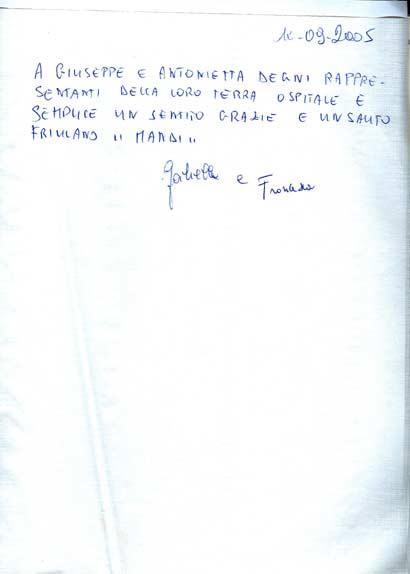 -09-2005
A GIUSEPPE E ANTONIETTA DEGNI RAPPRE-
SENTANTI DELLA LORO TERRA OSPITALE E
SEMPLICE UN SENTITO GRAZIE E UN SALUTO
FRIULANO " MANDI "
e